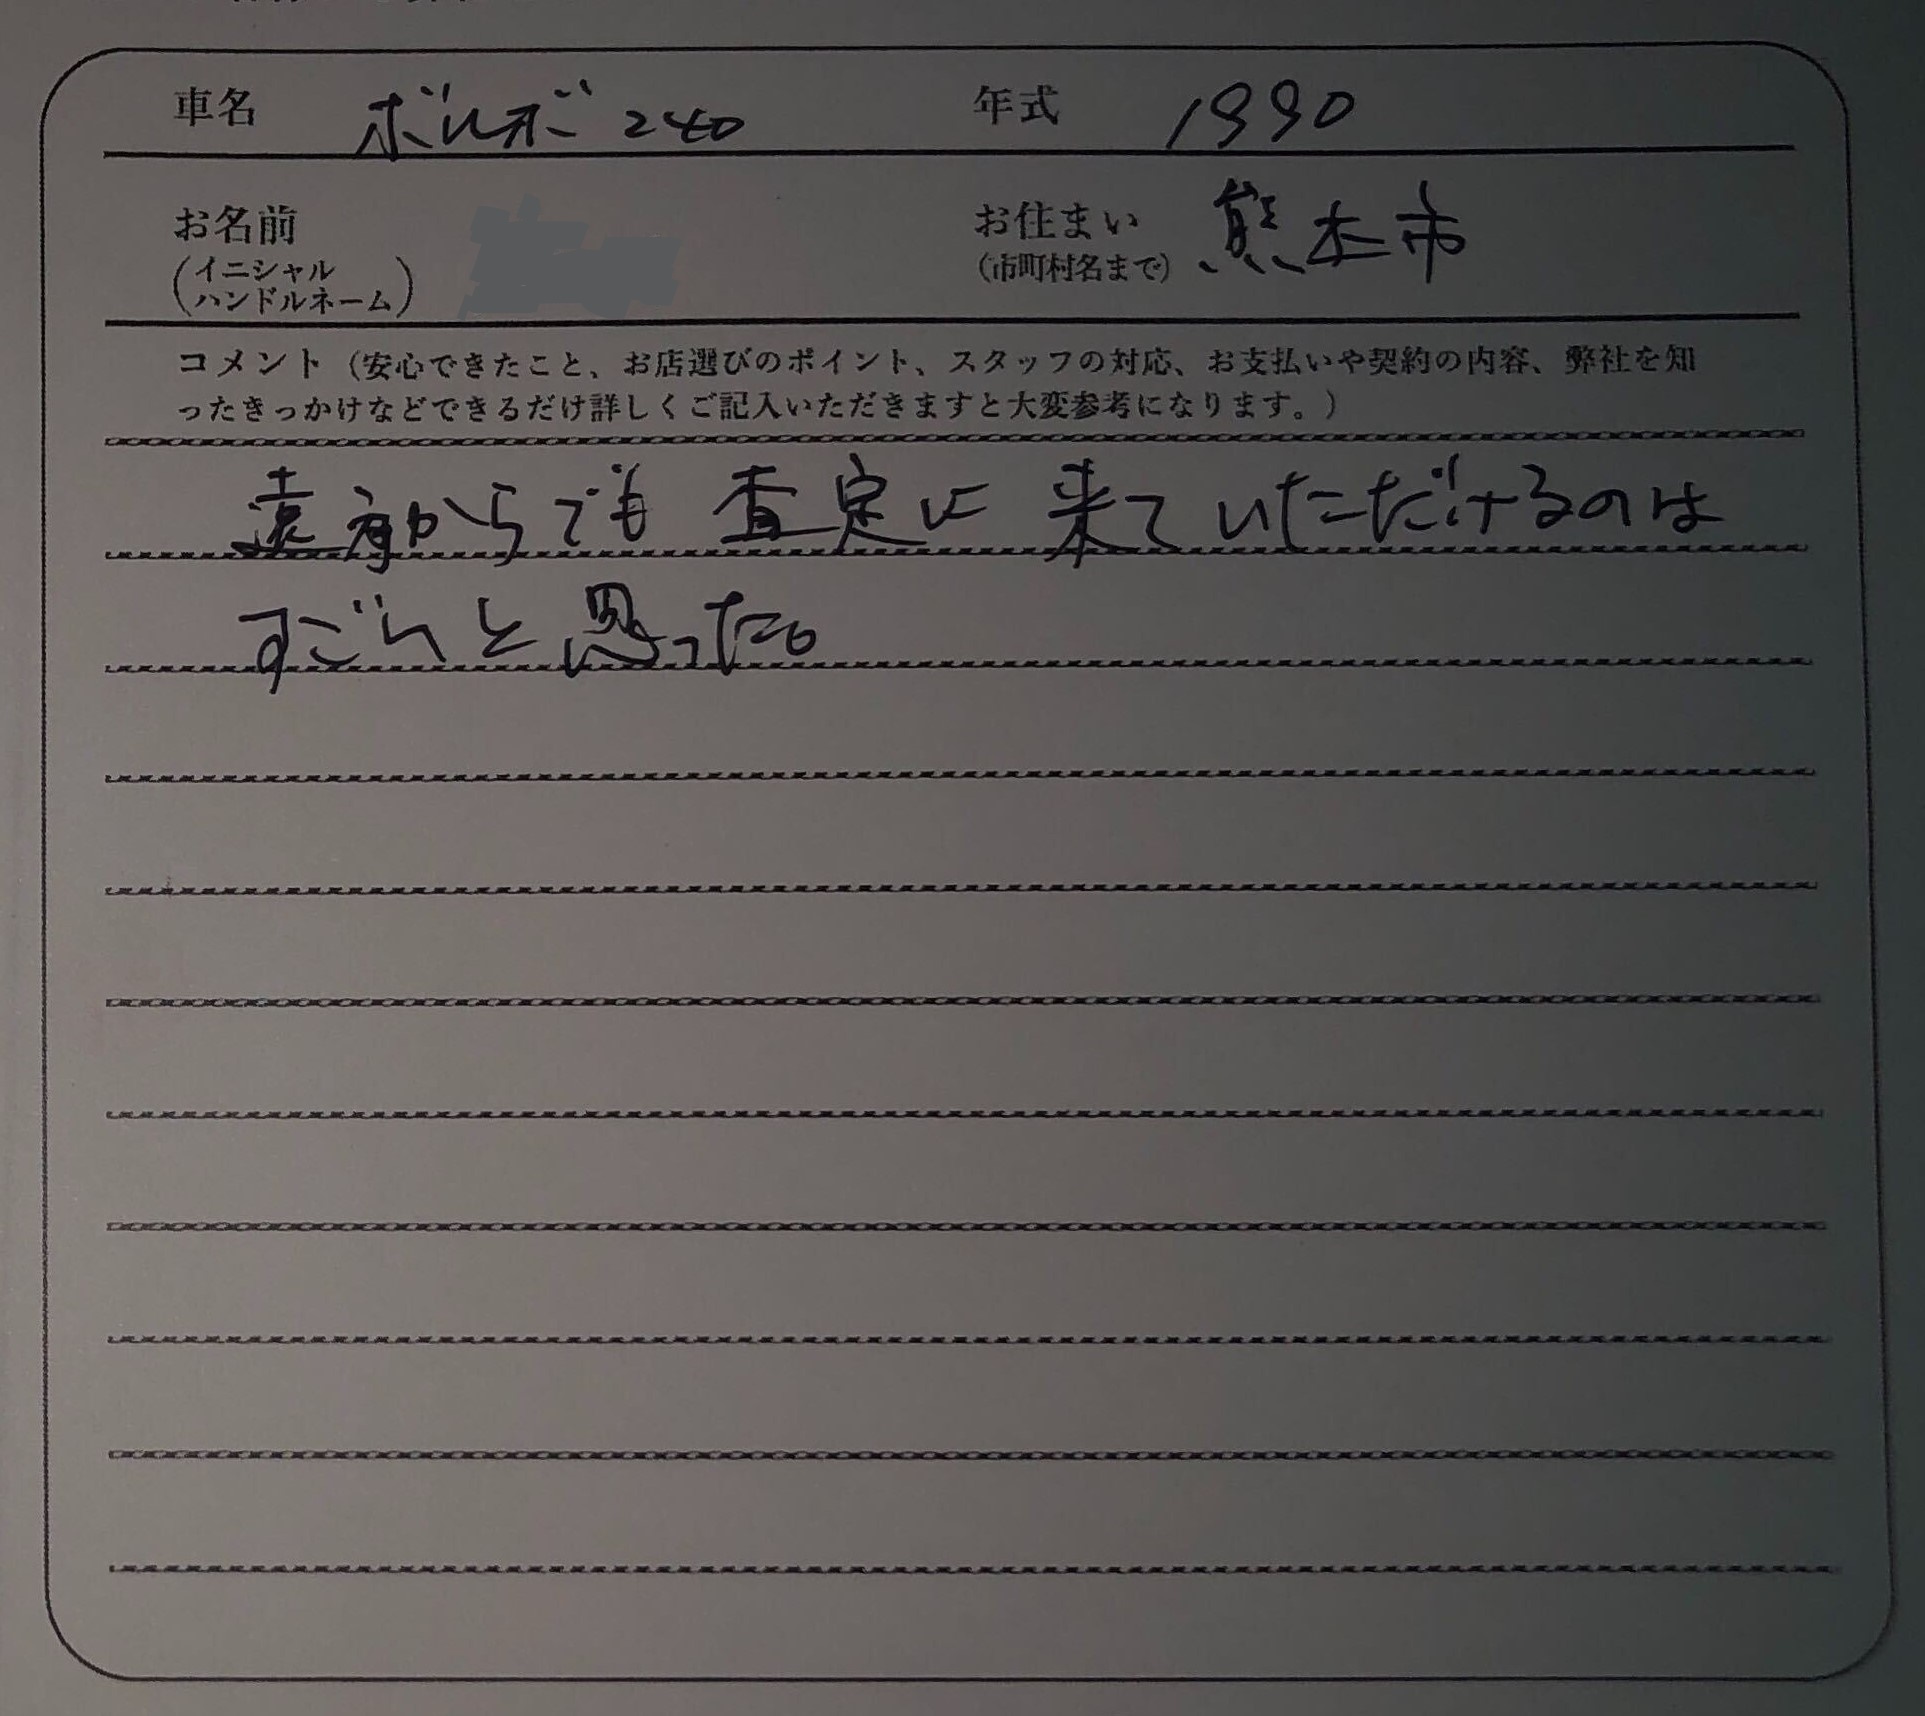 車名 ボルボ240 年式 1990
お名前 お住まい 熊本市
(イニシャル (市町村名まで)
ハンドルネーム)
コメント(安心できたこと、お店選びのポイント、スタッフの対応、お支払いや契約の内容、弊社を知
ったきっかけなどできるだけ詳しくご記入いただきますと大変参考になります。)
遠方からでも査定に来ていただけるのは
すごいと思った。